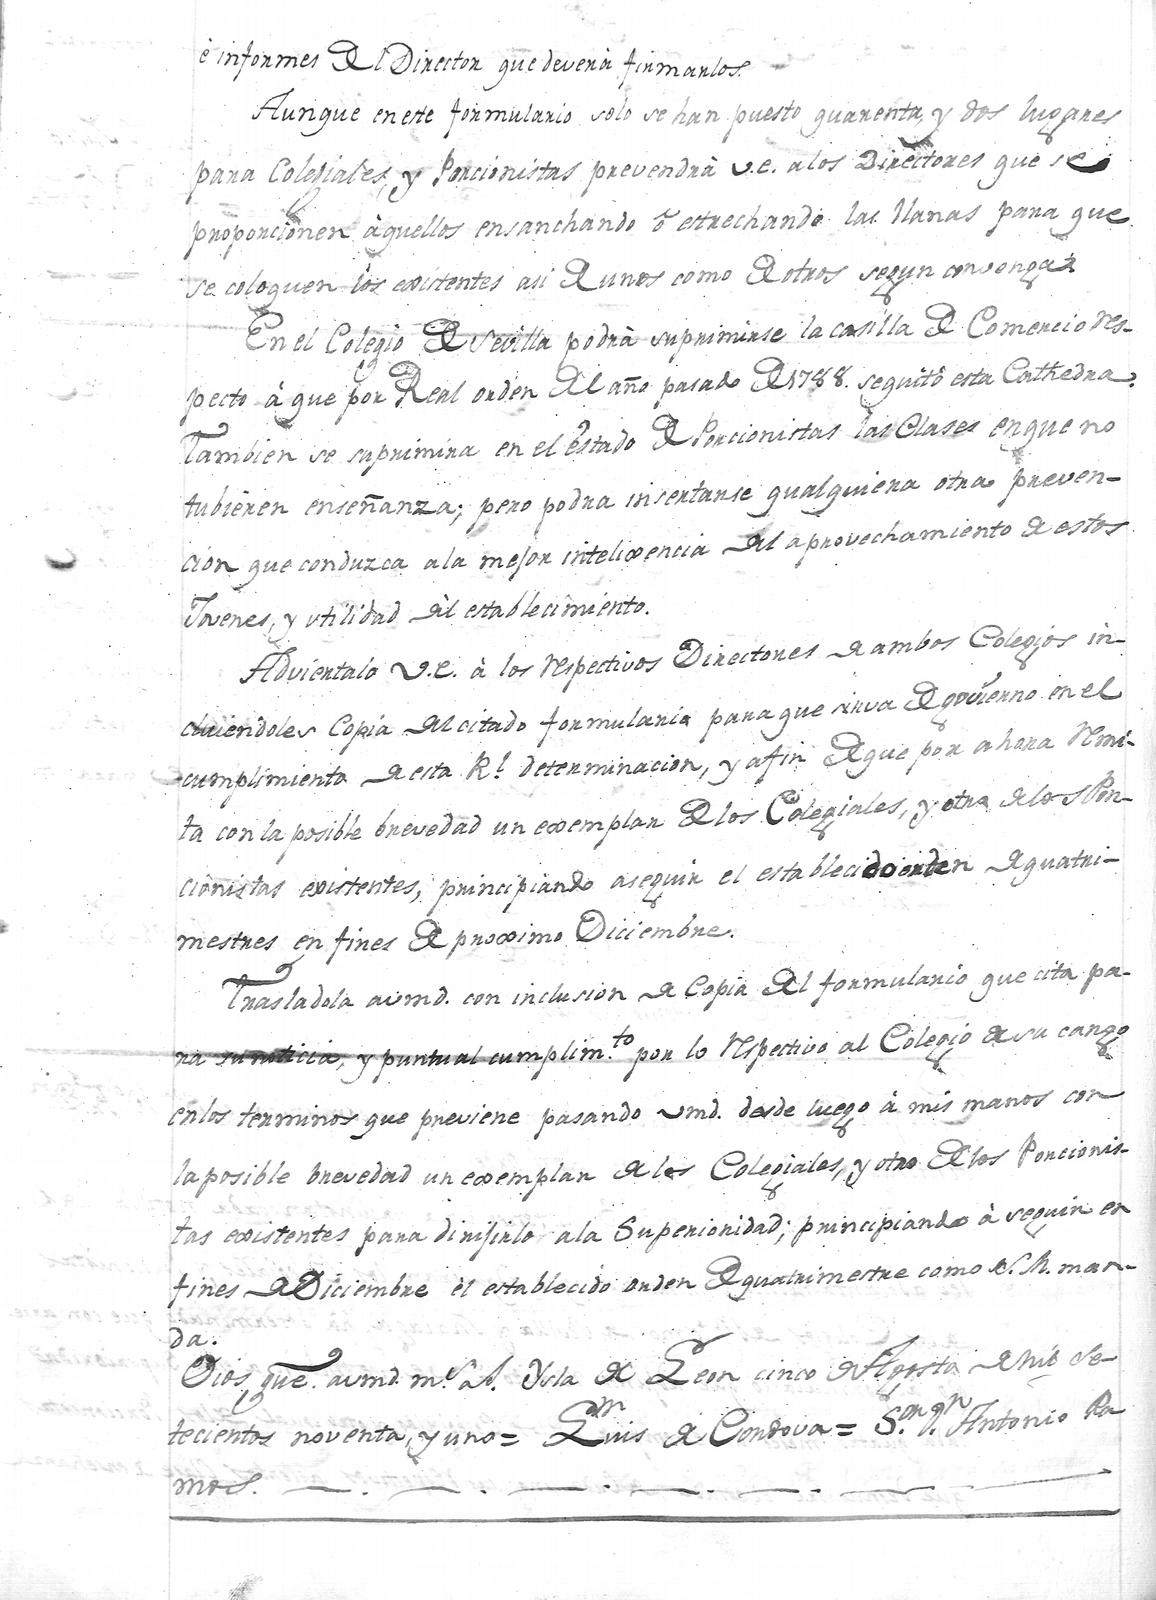 è informes del Director que deverá firmarlos.
Aunque en este formulario solo se han puesto quarenta, y dos lugares
para Colegiales, y Porcionistas prevendrà V.E. a los Directores que se
proporcionen àquellos ensanchando ò estrechando las llanas para que
se coloquen los existentes asi de unos como de otros segun convenga.
En el Colegio de Sevilla podrà suprimirse la casilla de Comercio res-
pecto à que por Real orden del año pasado de 1788. se quitò esta Cathedra.
Tambien se suprimira en el Estado de Porcionistas las Clases en que no
tubieren enseñanza; pero podra insertarse qualquiera otra preven-
cion que conduzca a la mejor intelixencia del aprovechamiento de estos
Jovenes, y utilidad del establecimiento.
Adviertalo V.E. à los respectivos Directores de ambos Colegios in-
cluiendoles Copia del citado formulario para que sirva de govierno en el
cumplimiento de esta Rl. determinacion, y a fin de que por ahora remi-
ta con la posible brevedad un exemplar de los Colegiales, y otro de los Por-
cionistas existentes, principiando a seguir el establecido orden de quatri-
mestres en fines de proximo Diciembre.
Trasladola a vmd. con inclusion de Copia del formulario que cita pa-
ra su noticia, y puntual cumplim.to por lo respectivo al Colegio de su cargo
en los terminos que previene pasando vmd. desde luego à mis manos con
la posible brevedad un exemplar de los Colegiales, y otro de los Porcionis-
tas existentes para dirijirlo a la Superioridad; principiando à seguir en
fines de Diciembre el establecido orden de quatrimestre como S.M. man-
da.
Dios gue. a vmd. ms. as. Ysla de Leon cinco de Agosto de mil se-
tecientos noventa, y uno = Luis de Cordova = S.or D.n Antonio Ra
mos.